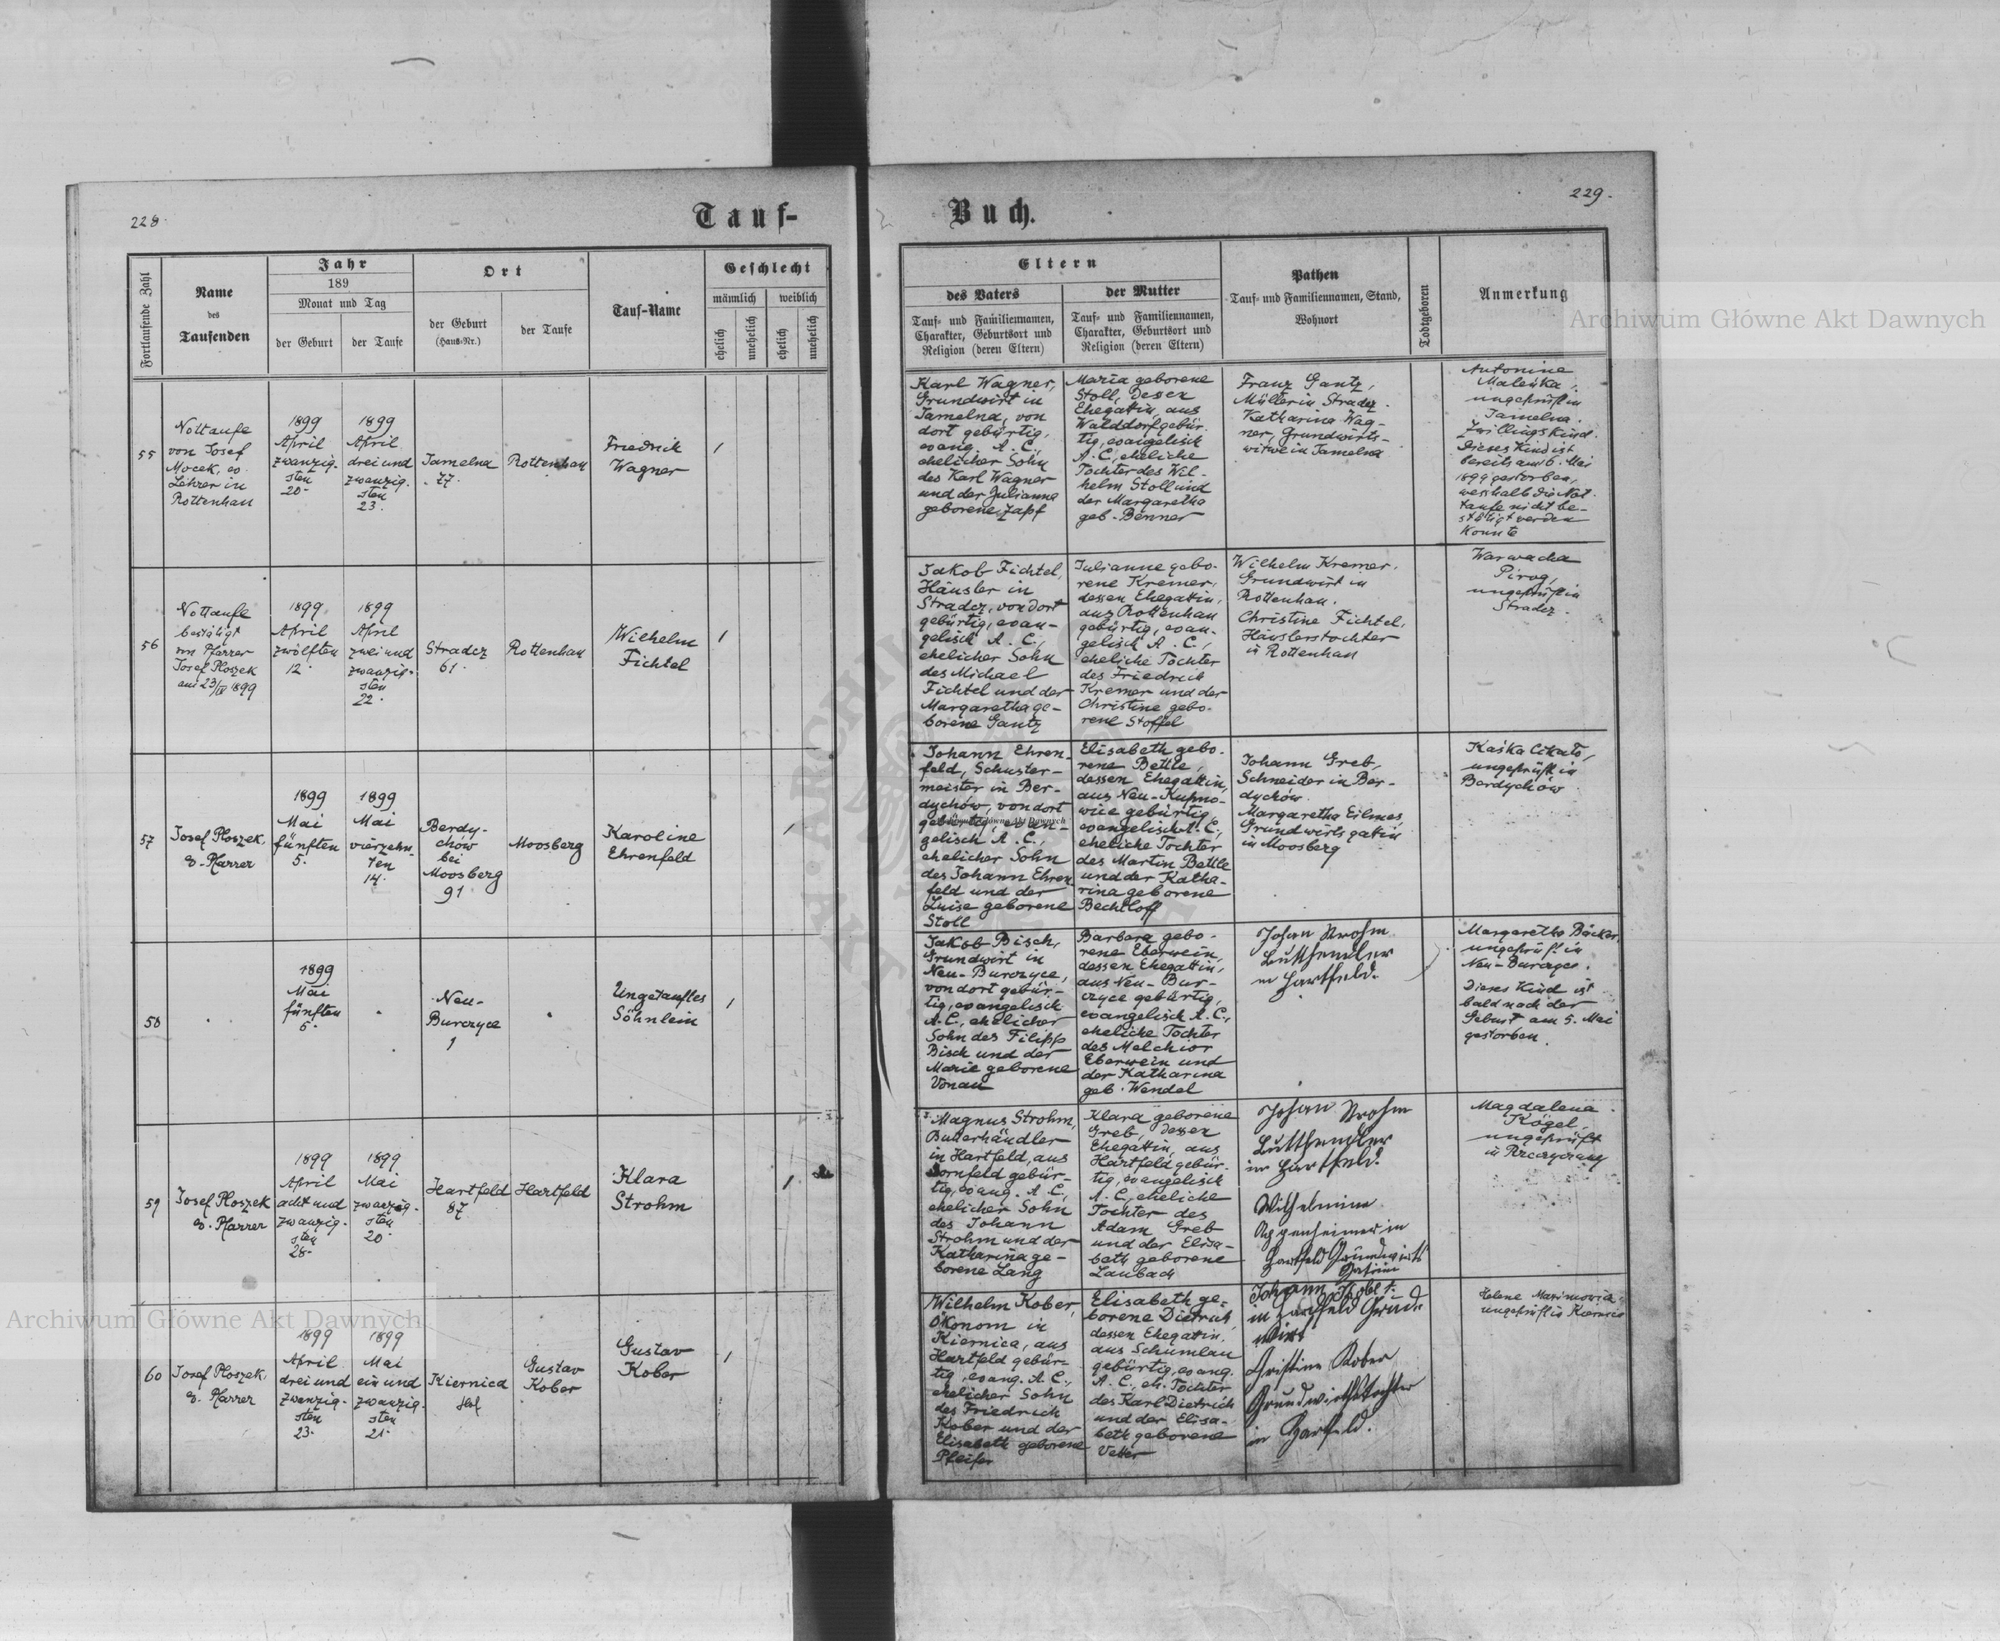 228.
Tauf-
Fortlaufende Zahl
Name
des
Taufenden
Jahr
189
Monat und Tag
der Geburt
der Taufe
Ort
der Geburt
(Haus-Nr.)
der Taufe
Tauf-Name
Geschlecht
männlich
weiblich
ehelich
unehelich
ehelich
unehelich
55
Nottaufe
von Josef
Mocek, ev.
Lehrer in
Rottenhan
1899
April
zwanzig-
sten
20.
1899
April
drei und
zwanzig-
sten
23.
Jamelna
27.
Rottenhan
Friedrich
Wagner
1
56
Nottaufe
bestätigt
von Pfarrer
Josef Ploszek
am 23/IV 1899
1899
April
zwölften
12.
1899
April
zwei und
zwanzig-
sten
22.
Stradcz
61.
Rottenhan
Wilhelm
Fichtel
1
57
Josef Ploszek,
ev. Pfarrer
1899
Mai
fünften
5.
1899
Mai
vierzehn-
ten
14.
Berdy-
chów
bei
Moosberg
91
Moosberg
Karoline
Ehrenfeld
1
58
1899
Mai
fünften
5.
Neu-
Burczyce
1
Ungetauftes
Söhnlein
1
59
Josef Ploszek
ev. Pfarrer
1899
April
acht und
zwanzig-
sten
28.
1899
Mai
zwanzig-
sten
20.
Hartfeld
87
Hartfeld
Klara
Strohm
1
60
Josef Ploszek,
ev. Pfarrer
1899
April
drei und
zwanzig-
sten
23.
1899
Mai
ein und
zwanzig-
sten
21.
Kiernica
Gustav
Kober
Gustav
Kober
1
229.
Buch.
Eltern
des Vaters
Tauf- und Familiennamen,
Charakter, Geburtsort und
Religion (deren Eltern)
der Mutter
Tauf- und Familiennamen,
Charakter, Geburtsort und
Religion (deren Eltern)
Pathen
Tauf- und Familiennamen, Stand,
Wohnort
Todtgeboren
Anmerkung
Karl Wagner,
Grundwirt in
Jamelna, von
dort gebürtig,
evang. A. C.,
ehelicher Sohn
des Karl Wagner
und der Julianna
geborene Zapf
Maria geborene
Stoll, dessen
Ehegattin, aus
Walddorf gebür-
tig, evangelisch
A. C., eheliche
Tochter des Wil-
helm Stoll und
der Margaretha
geb. Benner
Franz Gantz,
Müller in Stradcz.
Katharina Wag-
ner, Grundwirts-
witwe in Jamelna
Antonine
Maleńka,
ungeprüft in
Jamelna.
Zwillingskind.
Dieses Kind ist
bereits am 6. Mai
1899 gestorben,
weshalb die Not-
taufe nicht be-
stätigt werden
konnte
Jakob Fichtel,
Häusler in
Stradcz, von dort
gebürtig, evan-
gelisch A. C.,
ehelicher Sohn
des Michael
Fichtel und der
Margaretha ge-
borene Gantz
Julianne gebo-
rene Kremer,
dessen Ehegattin,
aus Rottenhan
gebürtig, evan-
gelisch A. C.,
eheliche Tochter
des Friedrich
Kremer und der
Christine gebo-
rene Stoffel
Wilhelm Kremer,
Grundwirt in
Rottenhan.
Christine Fichtel,
Häuslerstochter
in Rottenhan
Warwacha
Pirog,
ungeprüft in
Stradcz.
Johann Ehren-
feld, Schuster-
meister in Ber-
dychów, von dort
gebürtig, evan-
gelisch A. C.,
ehelicher Sohn
des Johann Ehren-
feld und der
Luise geborene
Stoll
Elisabeth gebo-
rene Bettle,
dessen Ehegattin,
aus Neu-Kupno-
wice gebürtig,
evangelisch A. C.,
eheliche Tochter
des Martin Bettle
und der Katha-
rina geborene
Bechtloff
Johann Greb,
Schneider in Ber-
dychów.
Margaretha Eilmes,
Grundwirtsgattin
in Moosberg
Kaśka
ungeprüft in
Berdychów
Jakob Bisch,
Grundwirt in
Neu-Burczyce,
von dort gebür-
tig, evangelisch
A. C., ehelicher
Sohn des Filipp
Bisch und der
Marie geborene
Vonau
Barbara gebo-
rene Eberwein,
dessen Ehegattin,
aus Neu-Bur-
czyce gebürtig,
evangelisch A. C.,
eheliche Tochter
des Melchior
Eberwein und
der Katharina
geb. Wendel
Johan Strohm
in Hartfeld.
Margaretha Bäcker,
ungeprüft in
Neu-Burczyce.
Dieses Kind ist
bald nach der
Geburt am 5. Mai
gestorben.
Magnus Strohm,
Butterhändler
in Hartfeld, aus
Dornfeld gebür-
tig, evang. A. C.,
ehelicher Sohn
des Johann
Strohm und der
Katharina ge-
borene Lang
Klara geborene
Greb, dessen
Ehegattin, aus
Hartfeld gebür-
tig, evangelisch
A. C., eheliche
Tochter des
Adam Greb
und der Elisa-
beth geborene
Laubach
Johan Strohm
in Hartfeld.
Wilhelmine
Oppenheimer in
Hartfeld Grundwirts
Gattin
Magdalena
Kögel,
ungeprüft
in
Wilhelm Kober,
Ökonom in
Kiernica, aus
Hartfeld gebür-
tig, evang. A. C.,
ehelicher Sohn
des Friedrich
Kober und der
Elisabeth geborene
Pfeifer
Elisabeth ge-
borene Dietrich,
dessen Ehegattin,
aus Schumlau
gebürtig, evang.
A. C., eh. Tochter
des Karl Dietrich
und der Elisa-
beth geborene
Vetter
Johann
in Hartfeld Grund-
wirt
Christine Kober
Grundwirthstochter
in Hartfeld.
Helene
ungeprüft in Kiernica
Archiwum Główne Akt Dawnych
Archiwum Główne Akt Dawnych
Archiwum Główne Akt Dawnych